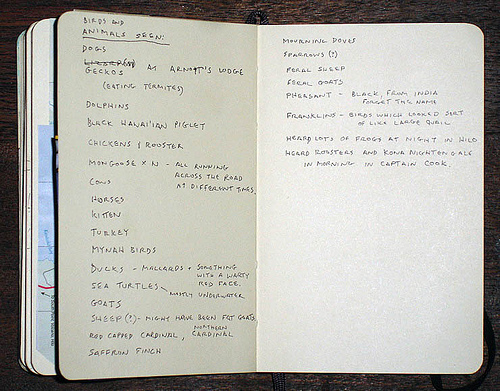 BIRDS AND
ANIMALS SEEN:
DOGS
GECKOS AT ARNOTT'S LODGE
(EATING TERMITES)
DOLPHINS
BLACK HAWAI'IAN PIGLET
CHICKENS & ROOSTER
MONGOOSE X N - ALL RUNNING
ACROSS THE ROAD
AT DIFFERENT TIMES.
COWS
HORSES
KITTEN
TURKEY
MYNAH BIRDS
DUCKS - MALLARDS & SOMETHING
WITH A WARTY
RED FACE.
SEA TURTLES - MOSTLY UNDERWATER
GOATS
SHEEP (?) - MIGHT HAVE BEEN FAT GOATS
RED CAPPED CARDINAL, NORTHERN
CARDINAL
SAFFRON FINCH
MOURNING DOVES
SPARROWS (?)
FERAL SHEEP
FERAL GOATS
PHEASANT - BLACK, FROM INDIA
FORGET THE NAME
FRANKLINS - BIRDS WHICH LOOKED SORT
OF LIKE LARGE QUAIL
HEARD LOTS OF FROGS AT NIGHT IN HILO
HEARD ROOSTERS AND KONA NIGHTINGALE
IN MORNING IN CAPTAIN COOK.